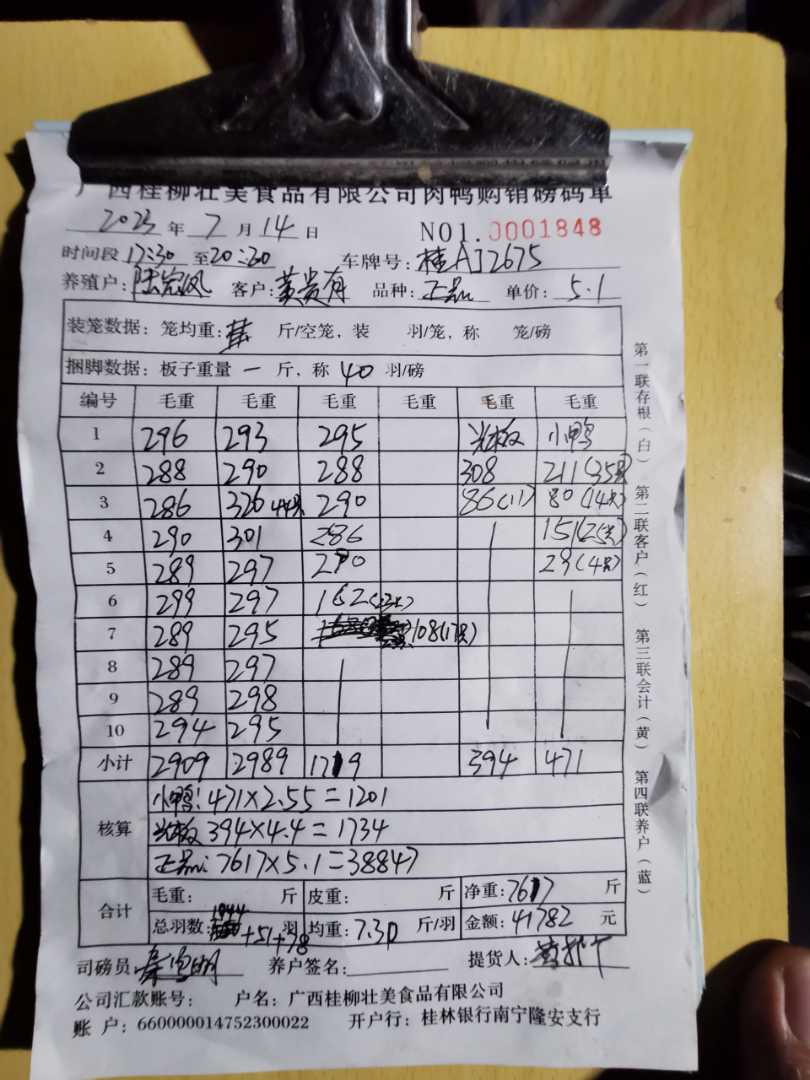 广西桂柳壮美食品有限公司肉鸭购销磅码单
2023 年 7 月 14 日 NO1.0001848
时间段 17:30 至 20:30 车牌号: 桂AJ2675
养殖户: 客户: 黄贵有 品种: 正品 单价: 5.1
装笼数据: 笼均重: 斤/空笼, 装 羽/笼, 称 笼/磅
捆脚数据: 板子重量 一 斤, 称 40 羽/磅
编号 毛重 毛重 毛重 毛重 毛重 毛重
1 296 293 295 光板 小鸭
2 288 290 288 308 211(35只)
3 286 326 44只 290 86(11) 80(14只)
4 290 301 286 151(25只)
5 289 297 290 29(4只)
6 299 297 162
7 289 295 108(17只)
8 289 297
9 289 298
10 294 295
小计 2909 2989 1719 394 471
核算
小鸭: 471×2.55=1201
光板 394×4.4=1734
正品: 7617×5.1=38847
合计
毛重: 斤 皮重: 斤 净重: 7617 斤
总羽数: 1044+51+78 羽 均重: 7.30 斤/羽 金额: 41782 元
司磅员 养户签名: 提货人:
公司汇款账号: 户名: 广西桂柳壮美食品有限公司
账 户: 660000014752300022 开户行: 桂林银行南宁隆安支行
第一联存根(白) 第二联客户(红) 第三联会计(黄) 第四联养户(蓝)